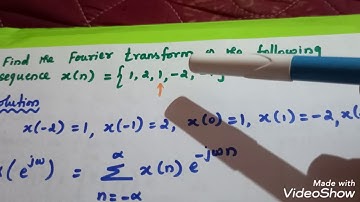 Find the Fourier transform of the following
sequence x(n) = { 1, 2, 1, -2,
solution
x(-2) = 1, x(-1) = 2, x(0) = 1, x(1) = -2, x(
x(e^jω) = ∑ x(n) e^-jωn
n=-α
α
Made with
VideoShow